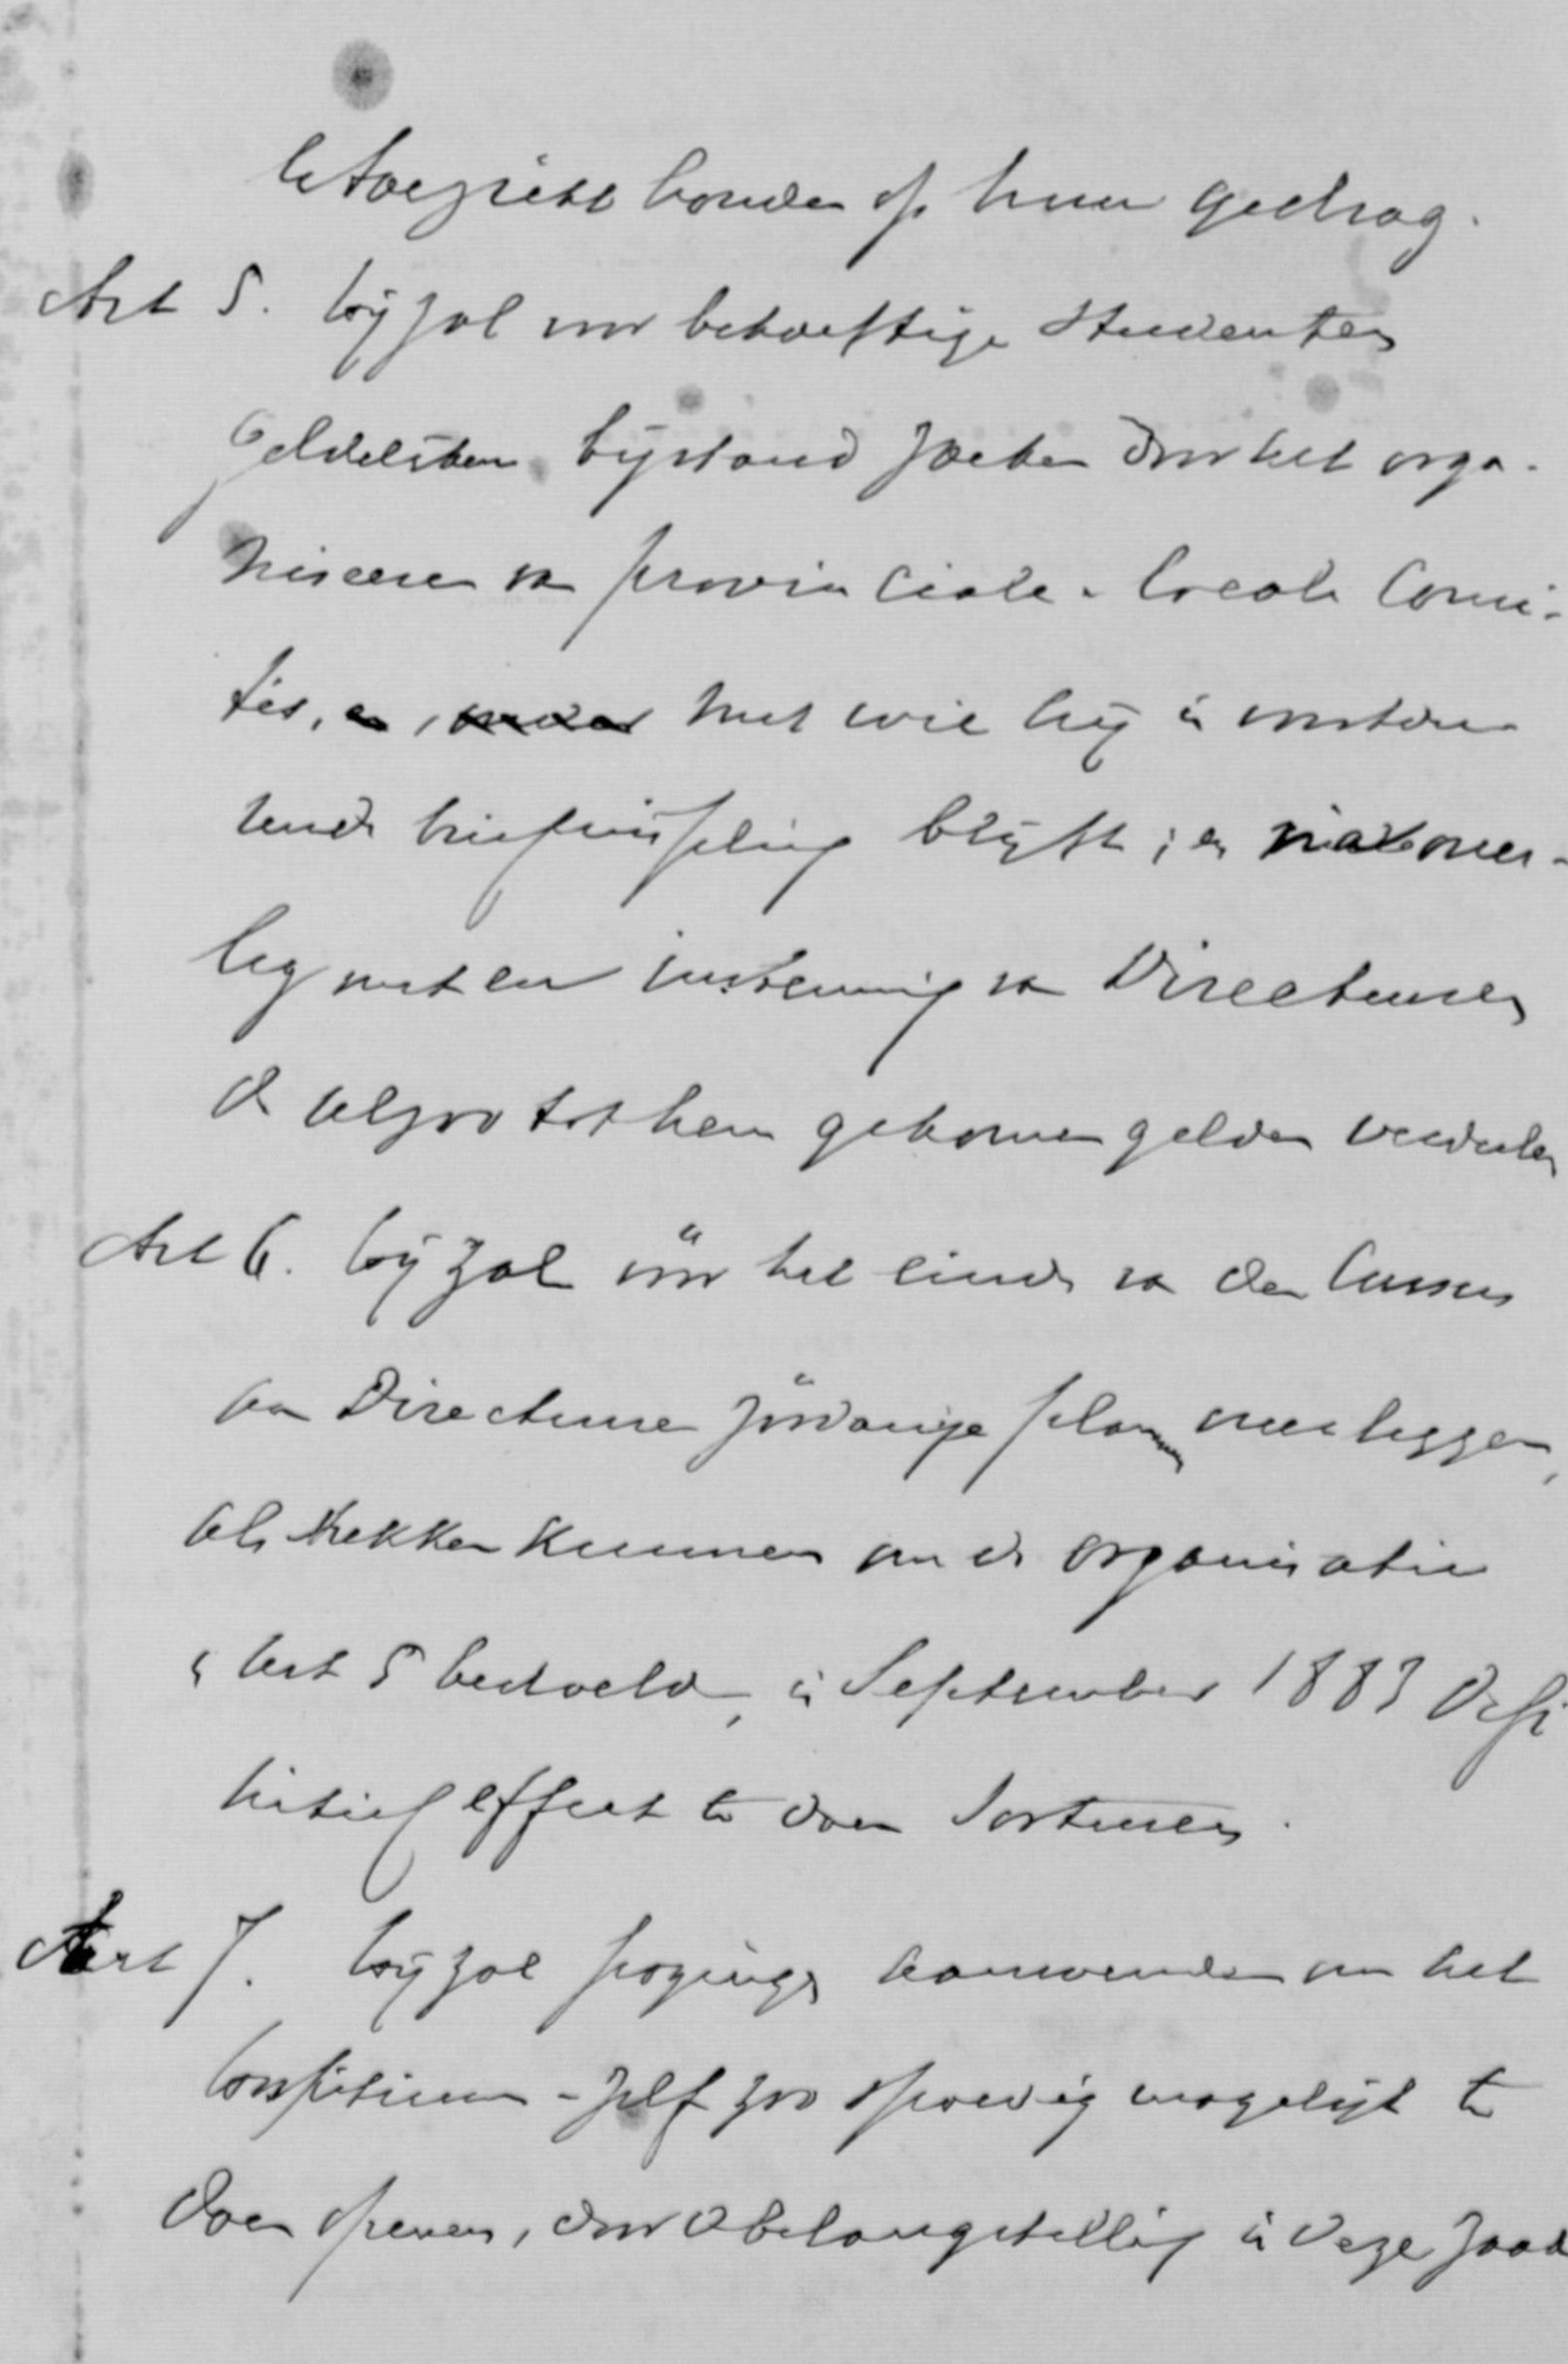 toezicht houden op hun gedrag.
Art 5. Hij zal voor behoeftige Studenten
geldelijken bijstand zoeken door het orga-
niseeren van provinciale & locale Comi-
tés, en, met wie hij in voortdu-
rende briefwisseling blijft; en na over-
leg met en instemming van Directeuren
de alzoo tot hem gekomen gelden verdeelen
Art 6. Hij zal vóór het einde van den Cursus
aan Directeuren zoodanige plannen overleggen,
als strekken kunnen om de organisatie
in Art 5 bedoeld, in September 1883 defi
nitief effect te doen sorteeren.
Art 7. Hij zal pogingen aanwenden om het
Hospitium-zelf zoo spoedig mogelijk te
doen openen, door de belangstelling in deze zaak